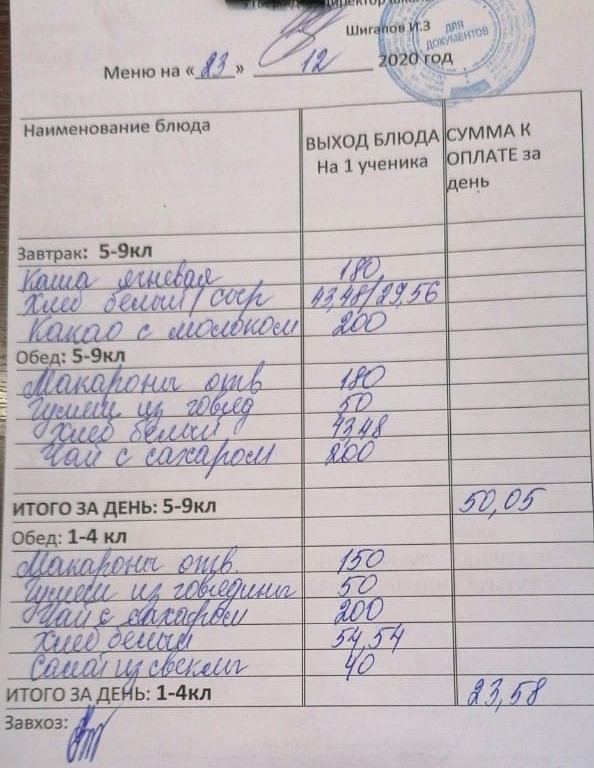 Директор школы
Шигапов И.З
ДЛЯ ДОКУМЕНТОВ
Меню на « 23 » 12 2020 год
Наименование блюда ВЫХОД БЛЮДА На 1 ученика СУММА К ОПЛАТЕ за день
Завтрак: 5-9кл
Каша ячневая 180
Хлеб белый/ сыр 43,48/29,56
Какао с молоком 200
Обед: 5-9кл
Макароны отв 180
Гуляш из говяд 50
Хлеб белый 43,48
Чай с сахаром 200
ИТОГО ЗА ДЕНЬ: 5-9кл 50,05
Обед: 1-4 кл
Макароны отв. 150
Гуляш из говядины 50
Чай с сахаром 200
Хлеб белый 54,54
Салат из свеклы 40
ИТОГО ЗА ДЕНЬ: 1-4кл 23,58
Завхоз: